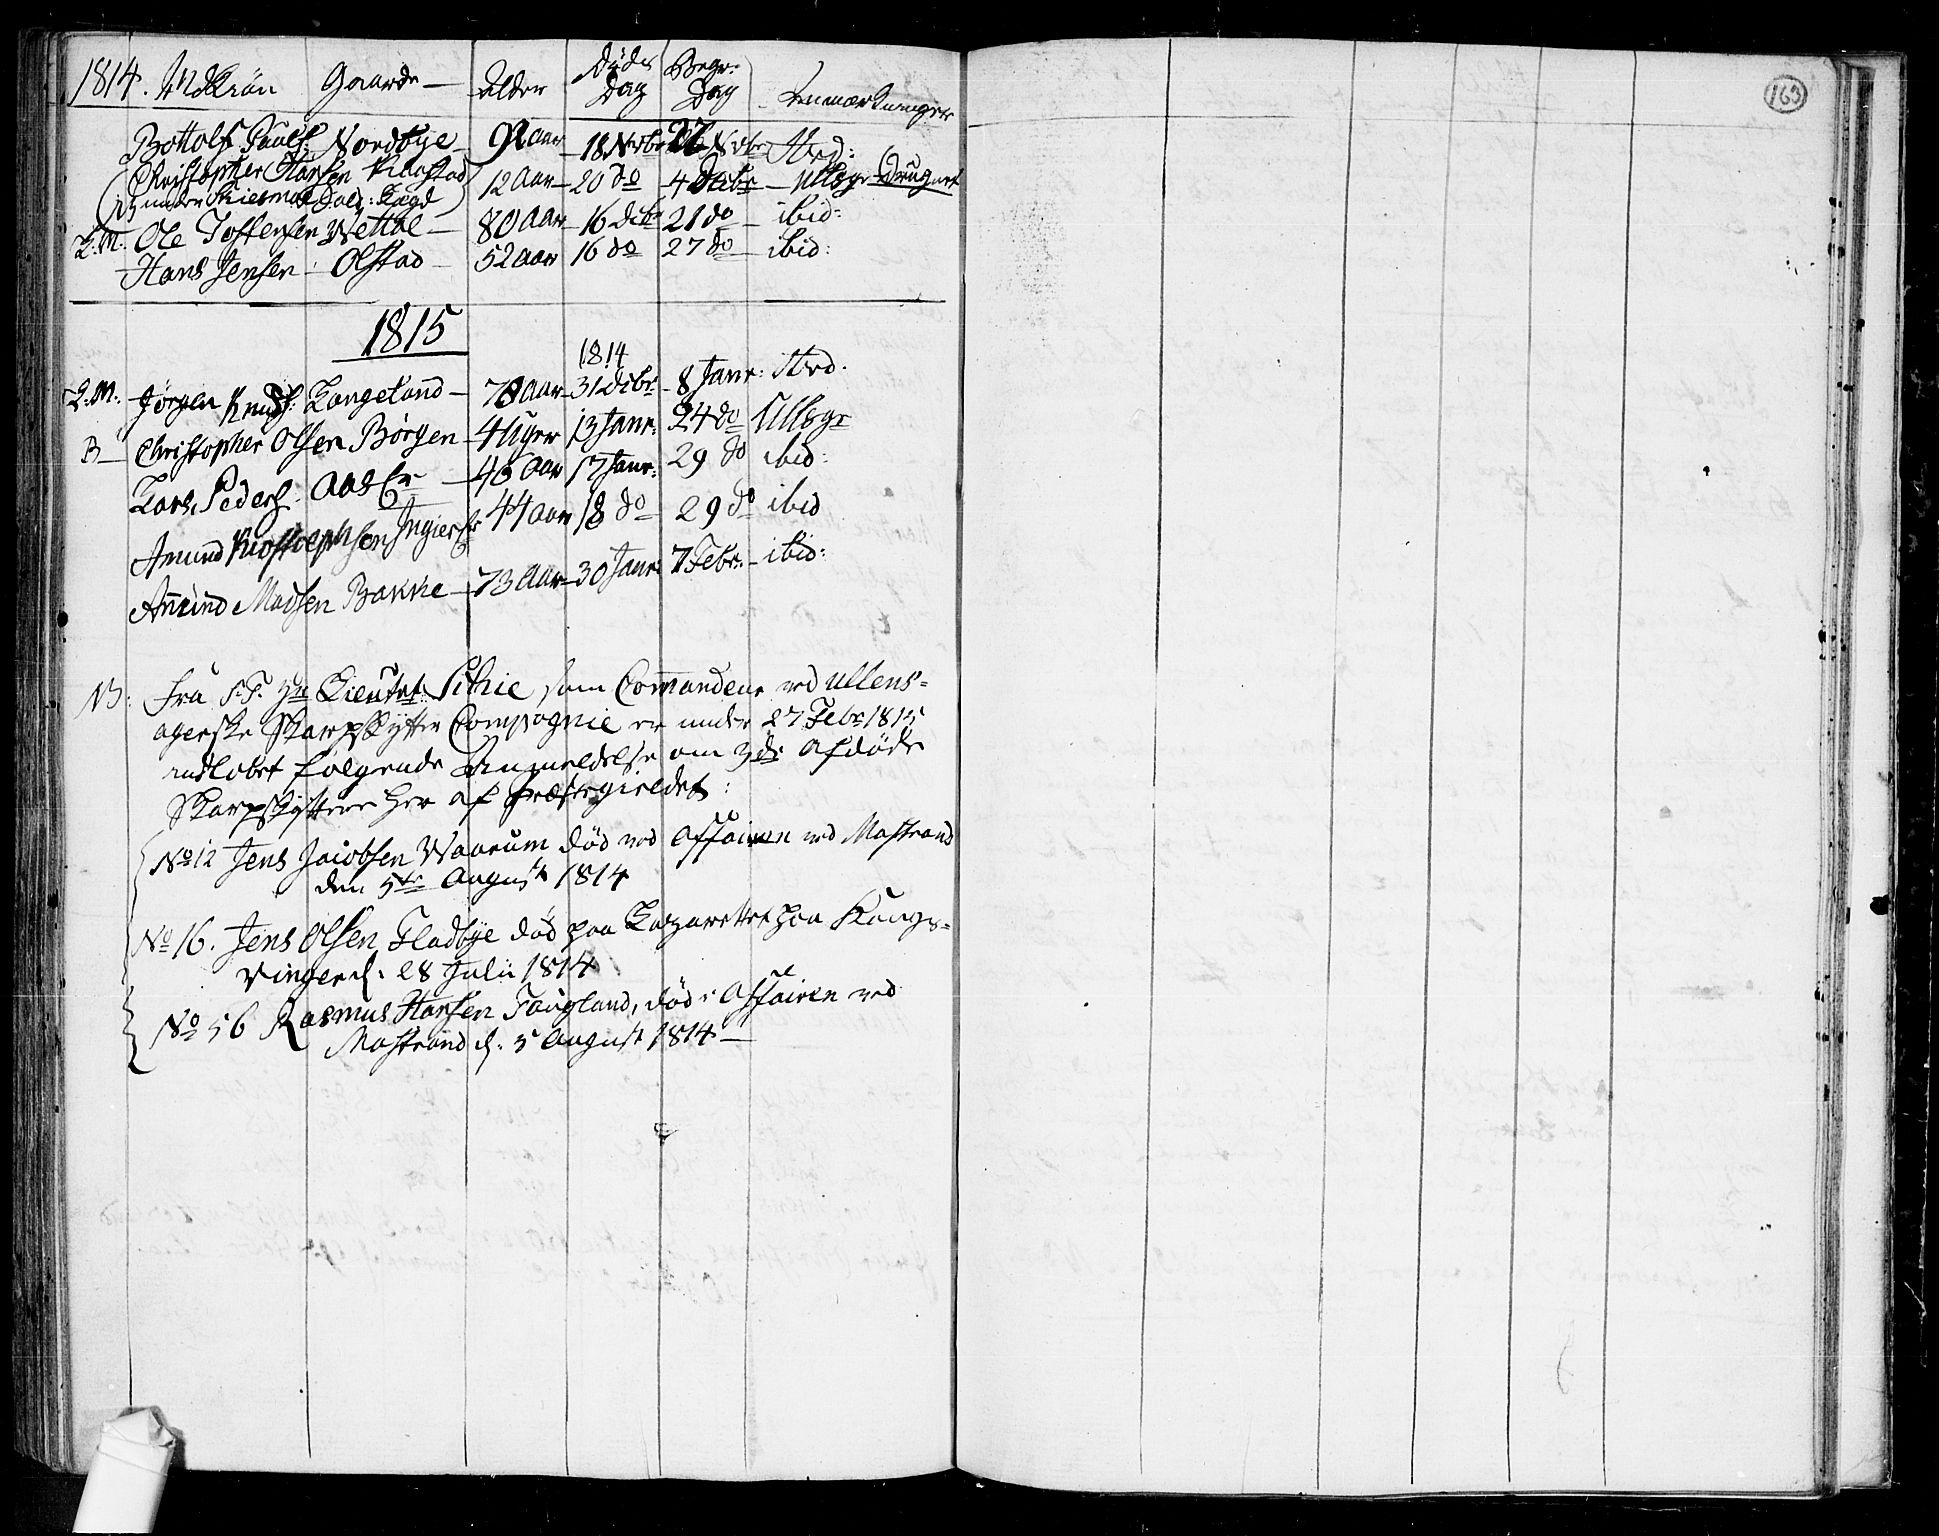 1814. Mdkiøn Gaarde — Alder Døds Dag Begr: Dag Anmærkninger
Bottolf Paulf: Nordbye — 92 aar — 18 Novbr 27 Novbr Urd:
Christopher Hansen Klaastad 12 Aar — 20 do — 4 Decbr — Ullsgr Drugnet
NB under Dals: Sogd
L.M. Ole Tostensen Wettal — 80 Aar — 16 Dcbr 21 do — ibid:
Hans Jensen . Olstad — 52 Aar 16 do 27 do — ibid:
1815
1814
L.M. Jørgen Knuds: Langeland — 78 Aar — 31 Dcbr — 8 Janr: Urd.
B — Christopher Olsen Børgen — 4 Uger 13 Janr: 24 do Ullsgr
Lars, Peders. Aas Er — 46 Aar 17 Janr: 29 do ibid:
Amund Kristophsen Ingier Er 44 Aar 18 do — 29 do ibid
Amund Madsen Bakke — 73 Aar — 30 Janr: 7 Febr. — ibid:
NB: Fra S.T. Hr Lieutnt: Sibbe som Commandeur ved Ullens-
agerske Skarpskytter Compagnie er under 27 Febr 1815
indløbet følgende Anmeldelse om 3de afdøde
Skarpskyttere her af Præstegieldet:
No 12 Jens Jacobsen Waarum død ved Affairen ved Mastrand
den 5te August 1814
No 16. Jens Olsen Fladbye død paa Lazarettet paa Kongs-
vinger d. 28 Julii 1814
No 56 Rasmus Hansen Faugland, død i Affairen ved
Mastrand d. 5 August 1814 —
163